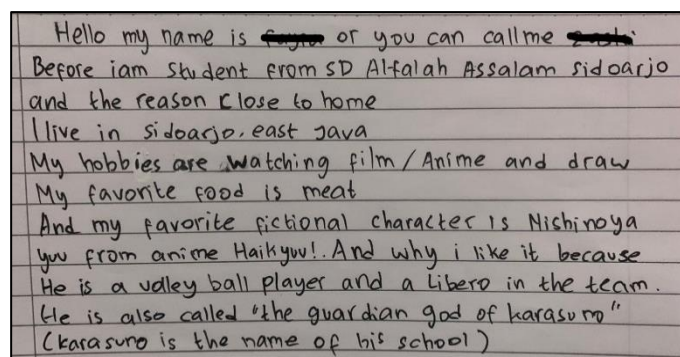 Hello my name is or you can callme
Before iam student from SD Alfalah Assalam sidoarjo
and the reason close to home
I live in sidoarjo, east Java
My hobbies are watching film / Anime and draw
My favorite food is meat
And my favorite fictional character is Nishinoya
yuu from anime Haikyuu!. And why i like it because
He is a valley ball player and a Libero in the team.
He is also called "the guardian god of karasuno"
(karasuno is the name of his school)